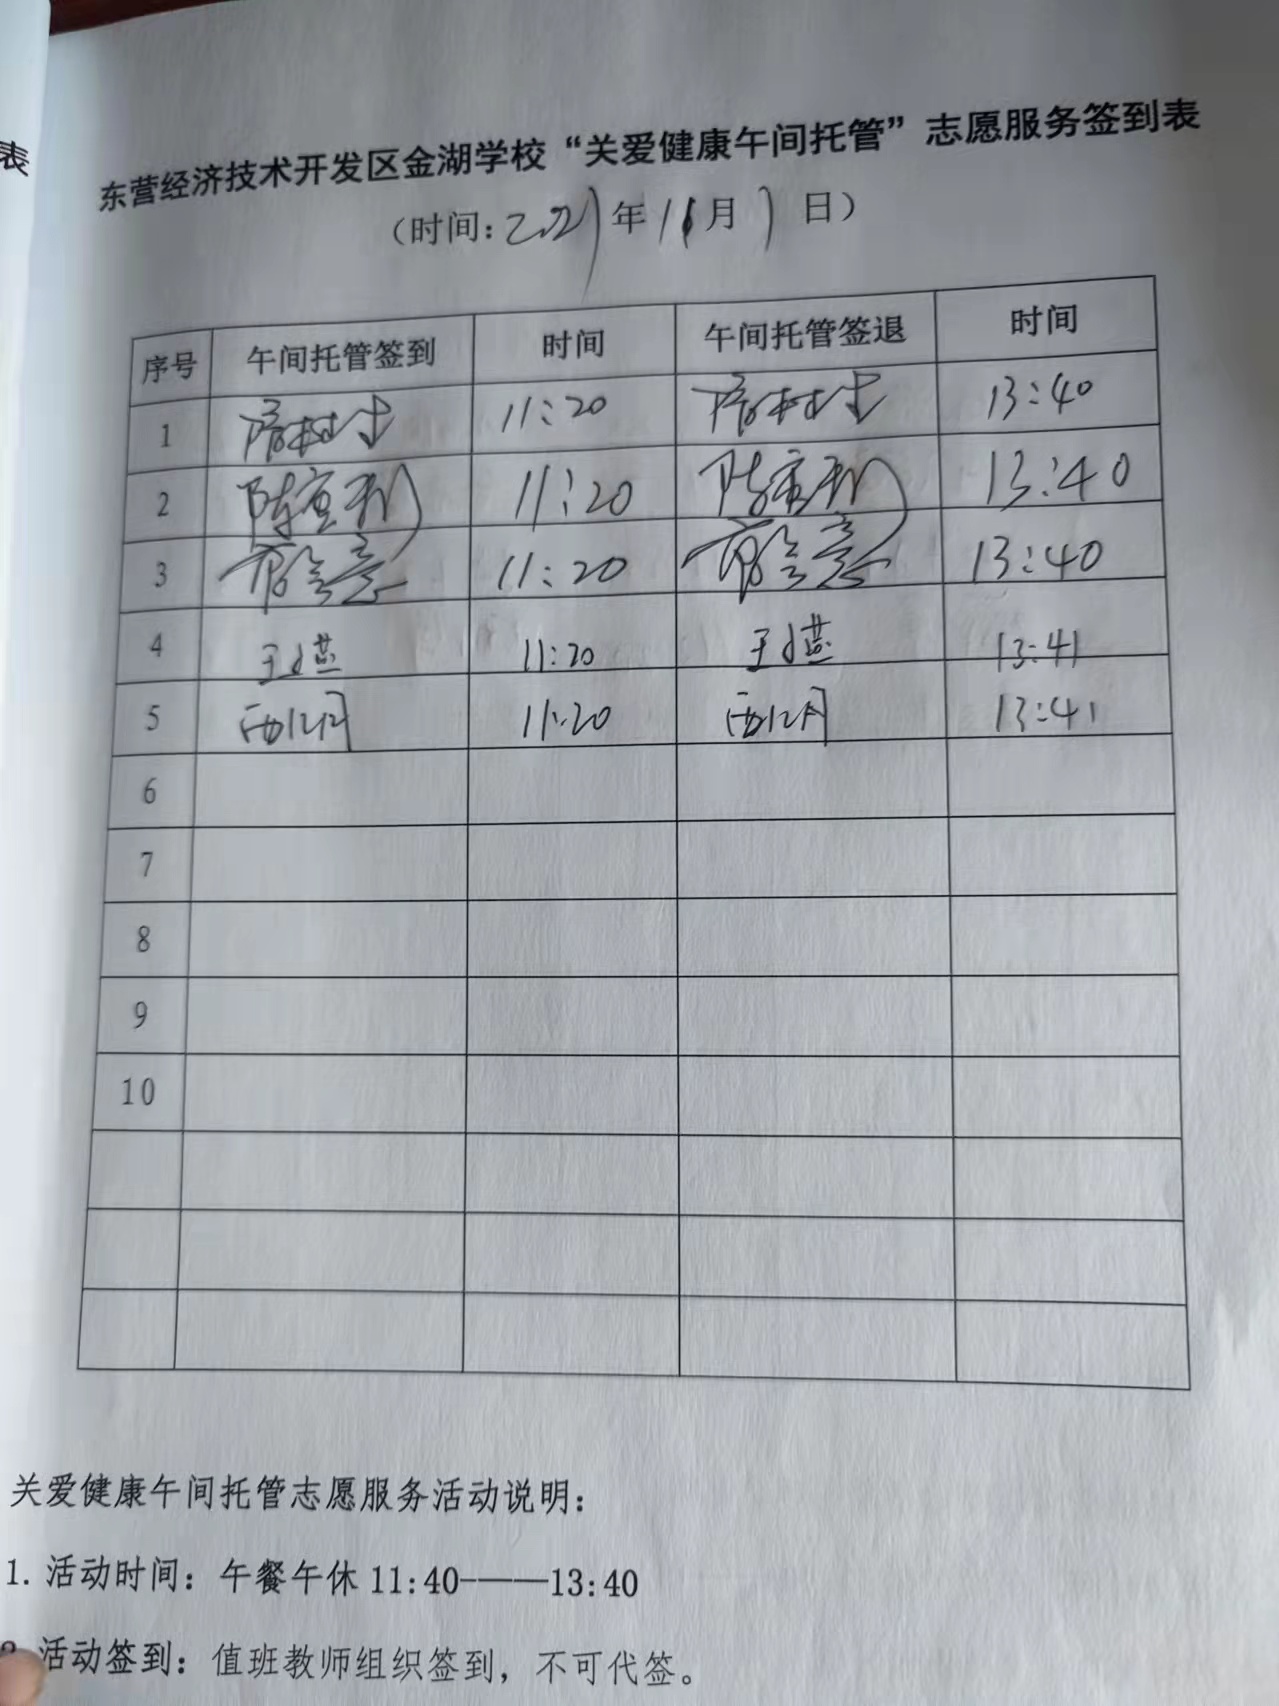 表
东营经济技术开发区金湖学校“关爱健康午间托管”志愿服务签到表
（时间：2021年11月1日）
序号 午间托管签到 时间 午间托管签退 时间
1 11:20 13:40
2 11:20 13:40
3 11:20 13:40
4 11:20 13:41
5 11:20 13:41
6
7
8
9
10
关爱健康午间托管志愿服务活动说明：
1. 活动时间：午餐午休 11:40——13:40
活动签到：值班教师组织签到，不可代签。